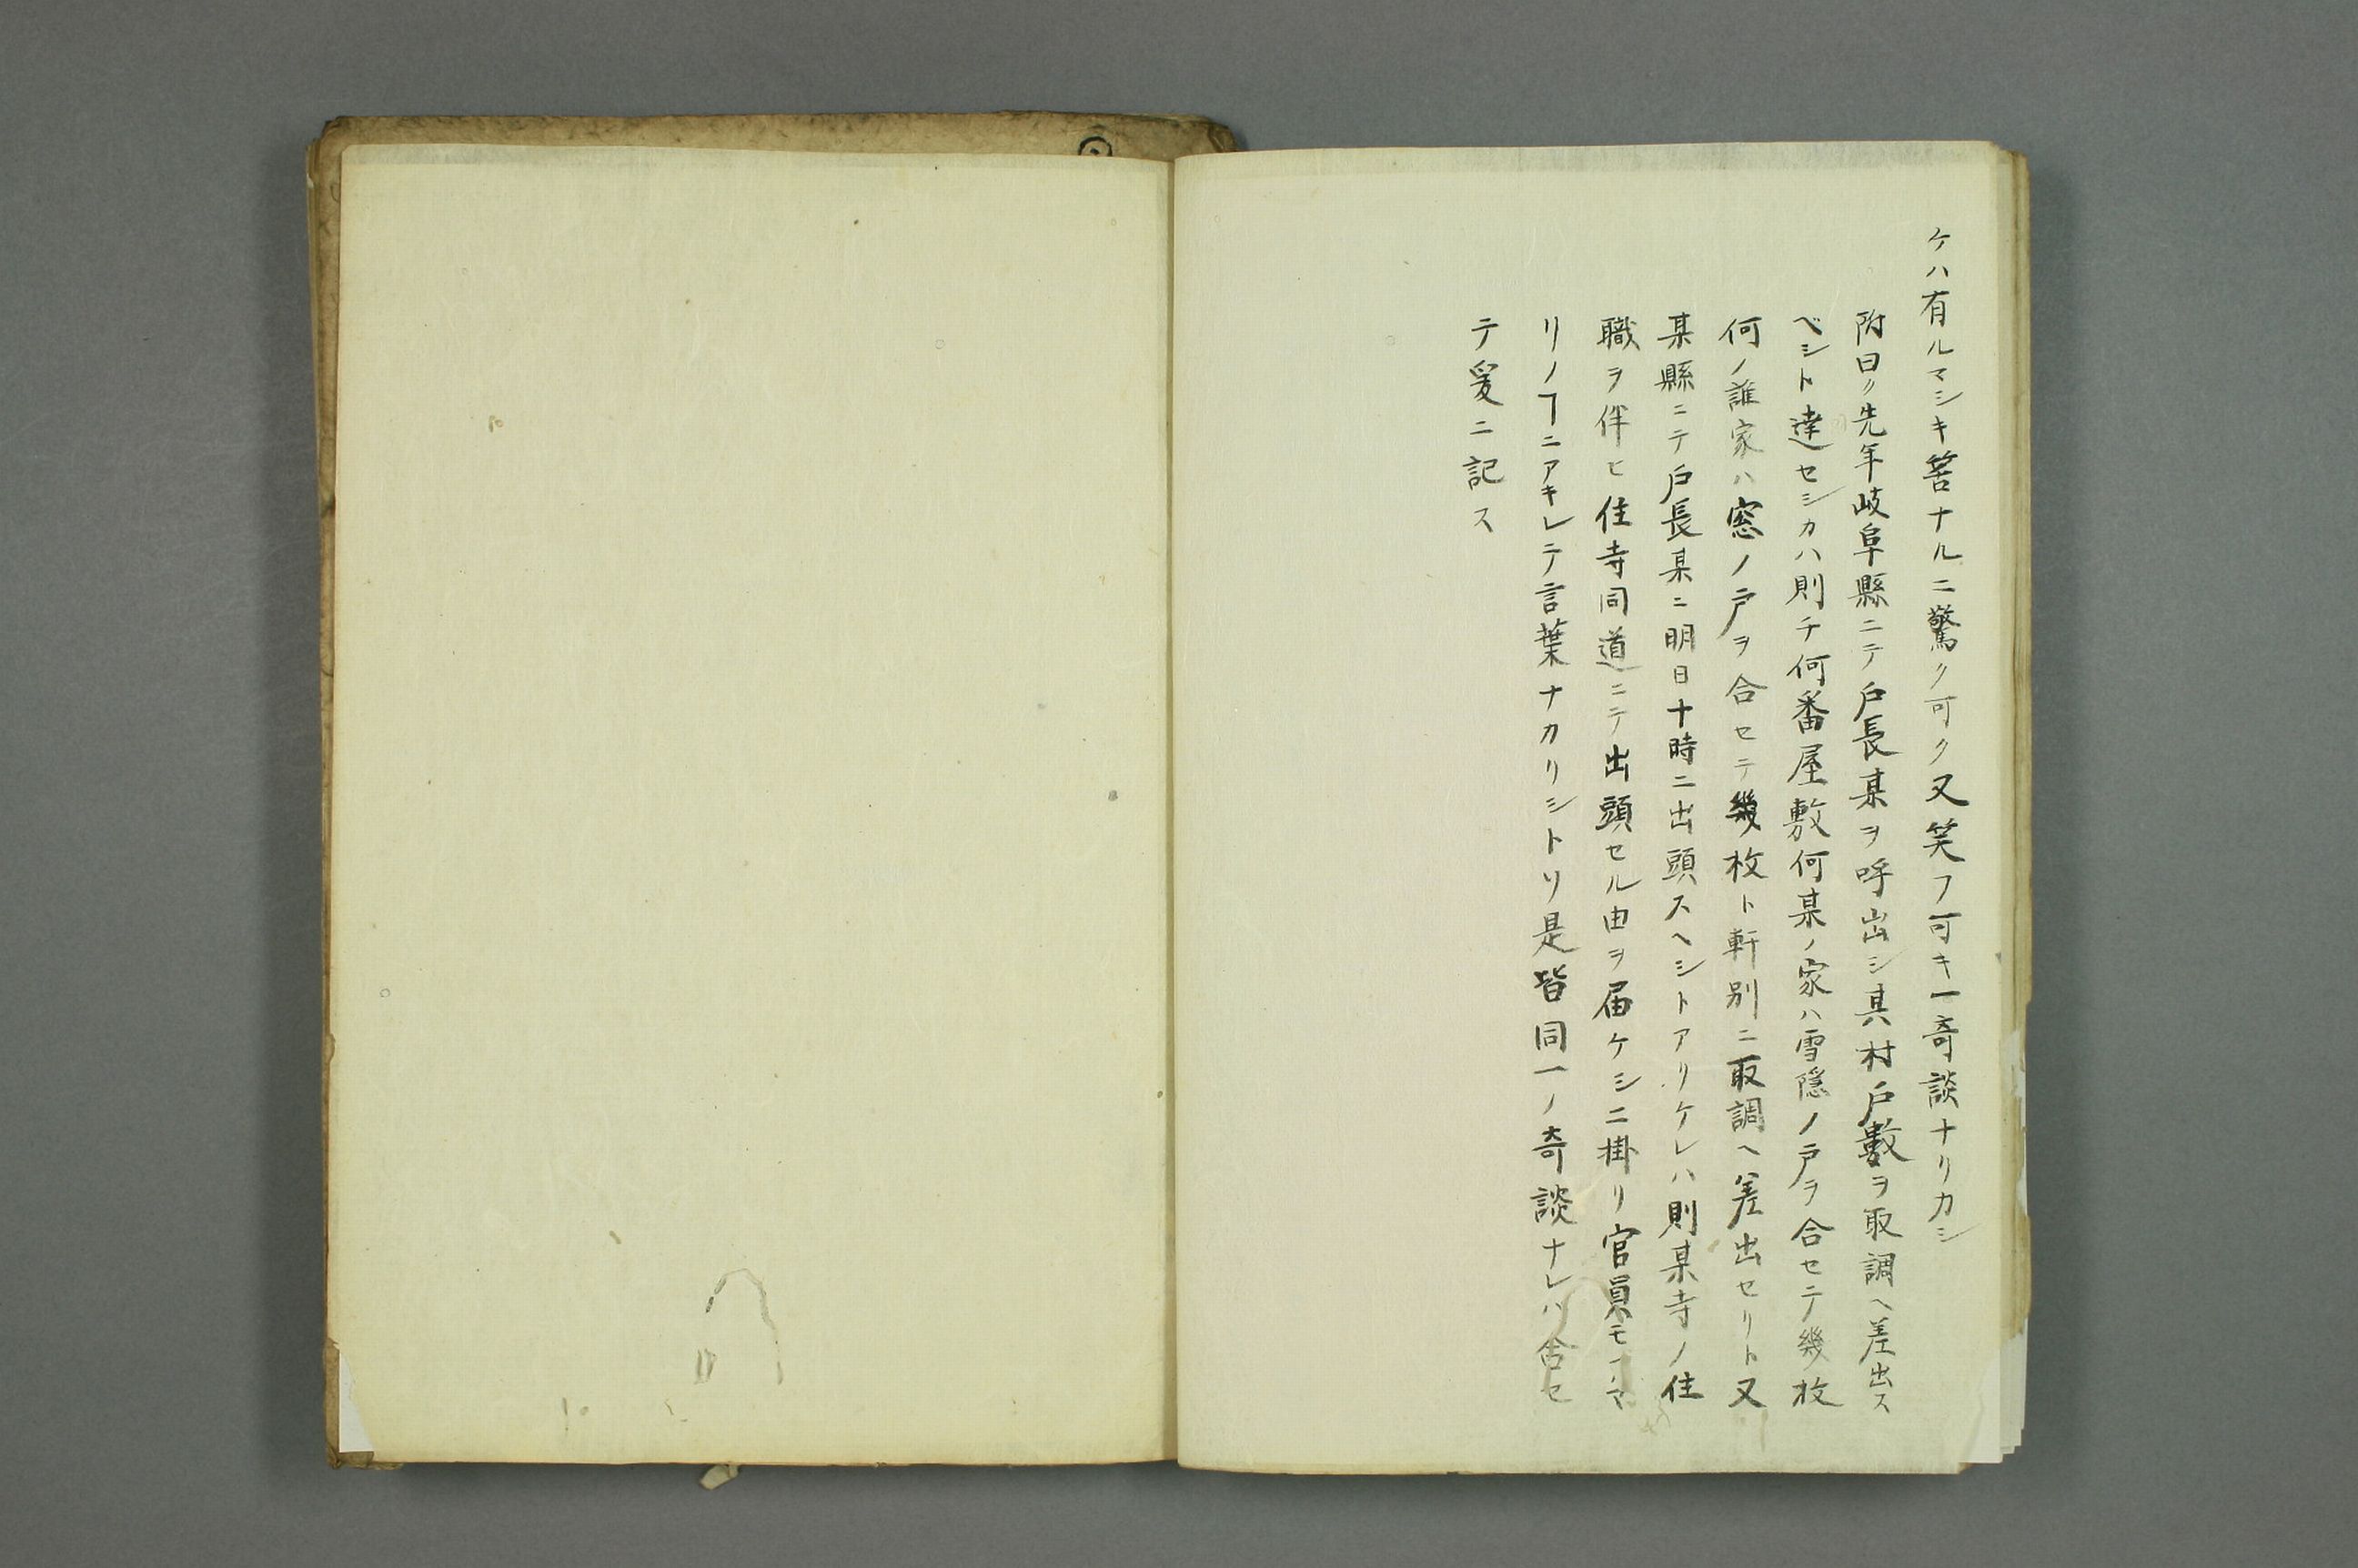 ケハ有ルマシキ筈ナルニ驚ク可ク又笑フ可キ一奇談ナリカシ
附曰ク先年岐阜縣ニテ戸長某ヲ呼出シ其村戸數ヲ取調ヘ差出ス
ベシト達セシカハ則チ何番屋敷何某ノ家ハ雪隠ノ戸ヲ合セテ幾枚
何ノ誰家ハ窓ノ戸ヲ合セテ幾枚ト軒別ニ取調ヘ差出セリト又
某縣ニテ戸長某ニ明日十時ニ出頭スヘシトアリケレハ則某寺ノ住
職ヲ伴ヒ住寺同道ニテ出頭セル由ヲ届ケシニ掛リ官員モア
リノヿニアキレテ言葉ナカリシトソ是皆同一ノ奇談ナレハ舍セ
テ爰ニ記ス